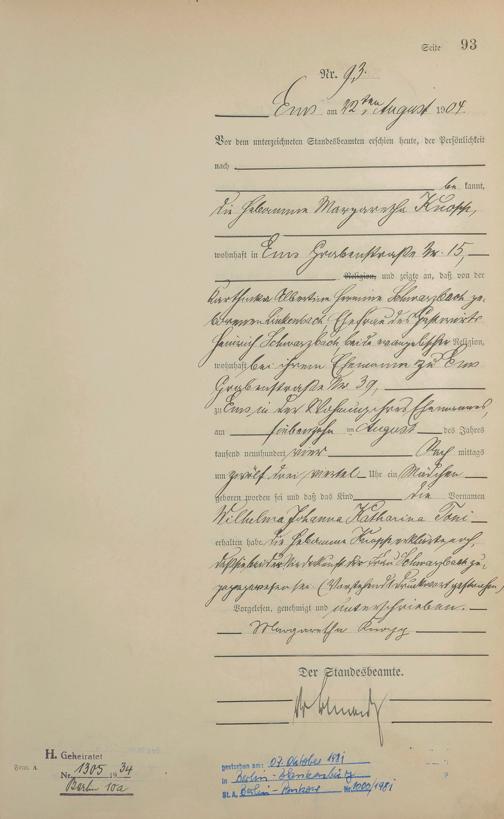 Seite 93
Nr. 93.
Ems am 22ten August 1904.
Vor dem unterzeichneten Standesbeamten erschien heute, der Persönlichkeit
nach
be kannt,
die Hebamme Margaretha Knopp,
wohnhaft in Ems Grabenstraße Nr. 15,
Religion, und zeigte an, daß von der
Albertine Hermine Schwarzbach ge-
borenen Linkenbach, Ehefrau des Gastwirts
Heinrich Schwarzbach, beide evangelischer Religion,
wohnhaft bei ihrem Ehemanne zu Ems
Grabenstraße Nr 39,
zu Ems in der Wohnung ihres Ehemannes,
am siebzehn ten August des Jahres
tausend neunhundert vier Nach mittags
um zwölf drei viertel Uhr ein Mädchen
geboren worden sei und daß das Kind die Vornamen
Wilhelma Johanna Katharina Toni
erhalten habe. Die Hebamme Knopp erklärte noch,
daß sie bei der Niederkunft der Frau Schwarzbach zu-
gegen gewesen sei. (Vorstehend Druckwort gestrichen)
Vorgelesen, genehmigt und unterschrieben.
Margaretha Knopp
Der Standesbeamte.
H. Geheiratet
Nr. 1305 1934
Berlin 10a
Form. A.
gestorben am: 07. Oktober 1981
in Berlin-Blankenburg
St.A. Berlin-Pankow Nr. 2020/1981